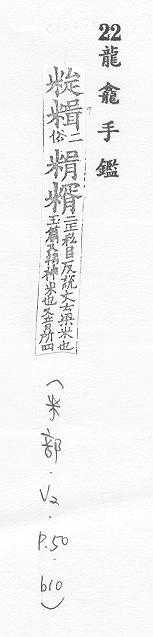 22 龍龕手鑑
二俗 糈 二正私吕反說文云祭米也
玉篇又精神米也又音所四
(米部.V2.P.50.b10)